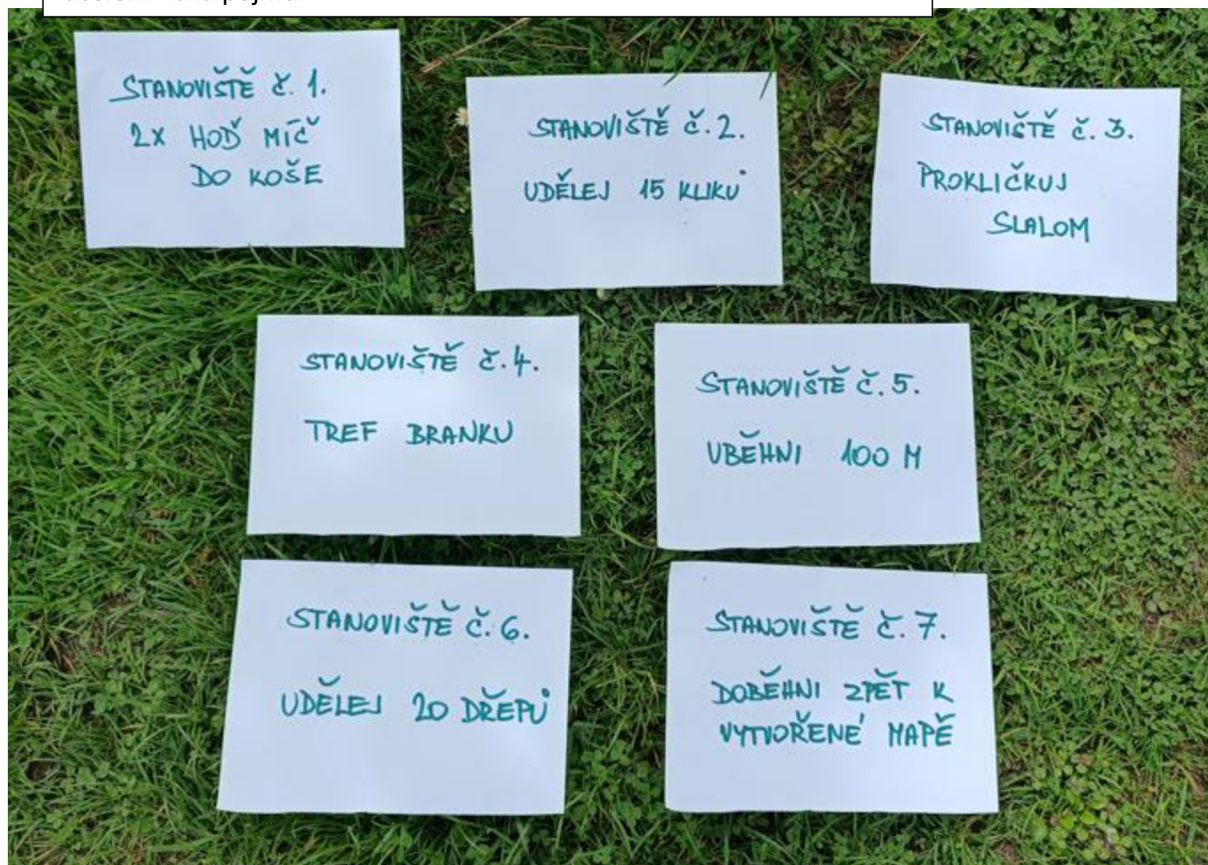 STANOVIŠTĚ Č. 1.
2X HOĎ MÍČ
DO KOŠE
STANOVIŠTĚ Č. 2.
UDĚLEJ 15 KLIKŮ
STANOVIŠTĚ Č. 3.
PROKLIČKUJ
SLALOM
STANOVIŠTĚ Č. 4.
TREF BRANKU
STANOVIŠTĚ Č. 5.
UBĚHNI 100 M
STANOVIŠTĚ Č. 6.
UDĚLEJ 20 DŘEPŮ
STANOVIŠTĚ Č. 7.
DOBĚHNI ZPĚT K
VYTVOŘENÉ MAPĚ